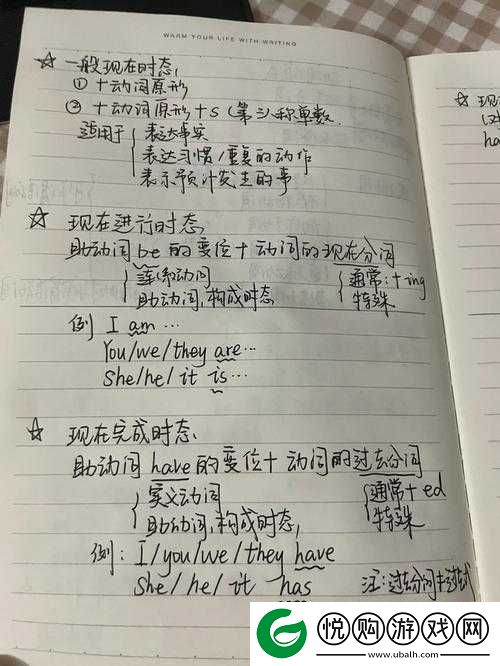 WARM YOUR LIFE WITH WRITING
☆ 一般现在时态,
① 十动词原形
② 十动词原形十s (第三人称单数.
适用于 { 表达事实
表达习惯/重复的动作
表示预计发生的事
☆ 现在进行时态,
助动词 be 的变位十动词的现在分词
{ 连系动词 { 通常:十ing
助动词,构成时态 特殊
例 I am …
You/we/they are…
She/he/it is…
☆ 现在完成时态,
助动词 have 的变位十动词的过去分词
{ 实义动词 { 通常十ed
助动词,构成时态, 特殊
例: I/you/we/they have
She/he/it has 注:过去分词
现在
ha
悦购游戏网
www.ubalh.com